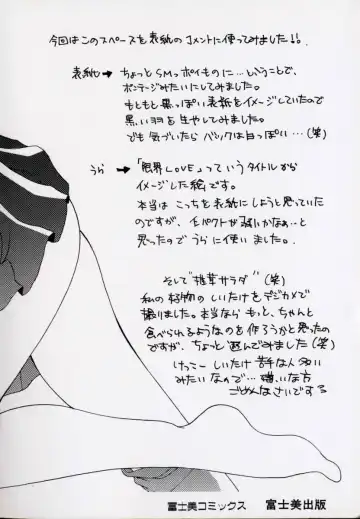 今回はこのスペースを表紙のコメントに使ってみました!!.
表紙→ちょっとSMっポイものに…ということで、
ボンテージみたいにしてみました。
もともと黒っぽい表紙をイメージしていたので
黒い羽を生やしてみました。
でも気づいたらバックは白っぽい…(笑)
うら→「限界LOVE」っていうタイトルから
イメージした絵です。
本当はこっちを表紙にしようと思っていた
のですが、インパクトが弱いかなぁ…と
思ったのでうらに使いました。
そして"椎茸サラダ"(笑)
私の好物のしいたけをデジカメで
撮りました。本当ならもっと、ちゃんと
食べられるようなのを作ろうかと思ったの
ですが、ちょっと遊んでみました(笑)
けっこーしいたけ苦手な人多い
みたいなので…嫌いな方
ごめんなさいでする
富士美コミックス 富士美出版